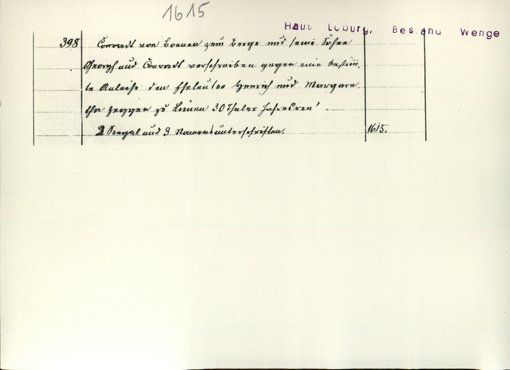 1615
Haus Loburg, Bestand Wenge
398 Conradt von Boenen zum Berge und seine Söhne
Georgh und Conradt verschreiben gegen eine bestimm
te Anleihe den Eheleuten Henrich und Margare
tha Zeggen zu Lünen 30 Thaler Jahresren
2 Siegel und 3 Namensunterschriften. 1615.